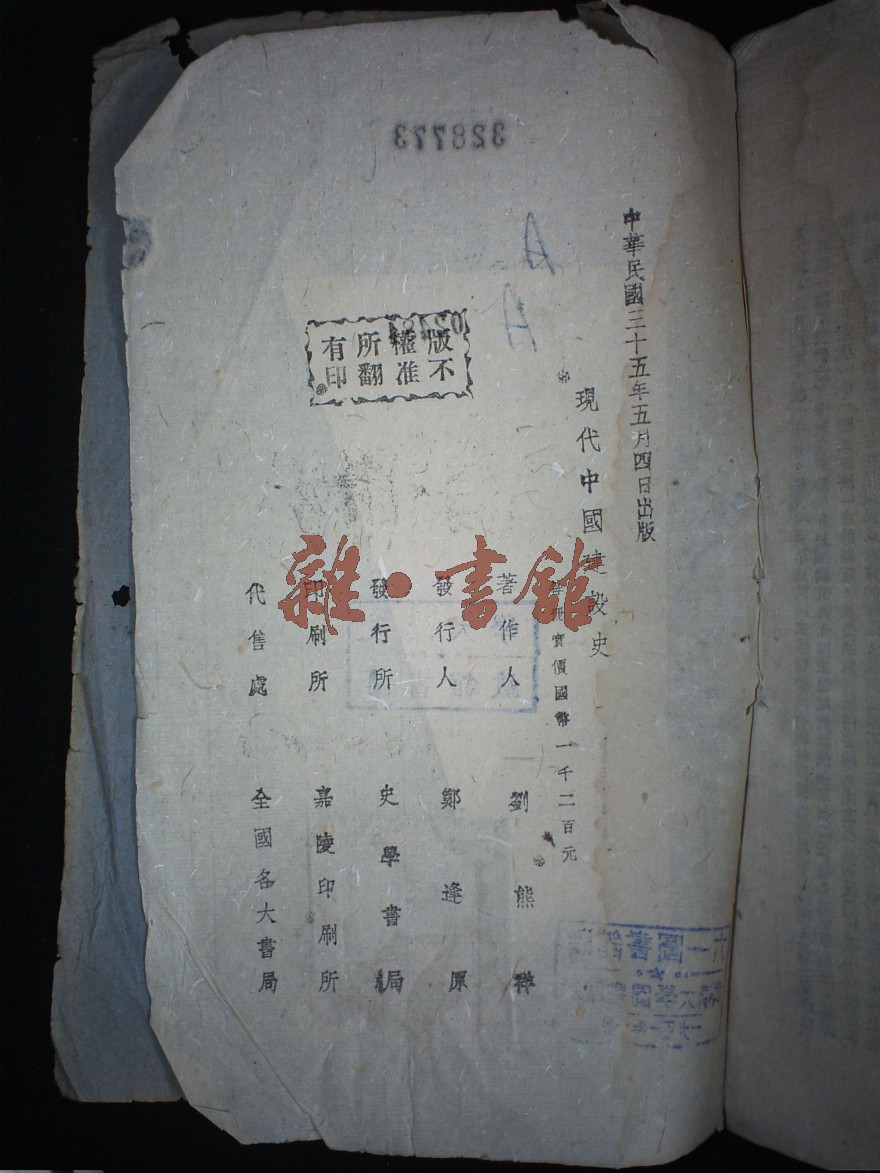 328773
中華民國三十五年五月四日出版
現代中國建設史
每冊實價國幣一千二百元
著作人 劉熊祥
發行人 鄭逢原
發行所 史學書局
印刷所 嘉陵印刷所
代售處 全國各大書局
版權所有
不准翻印
A
A
雜·書館